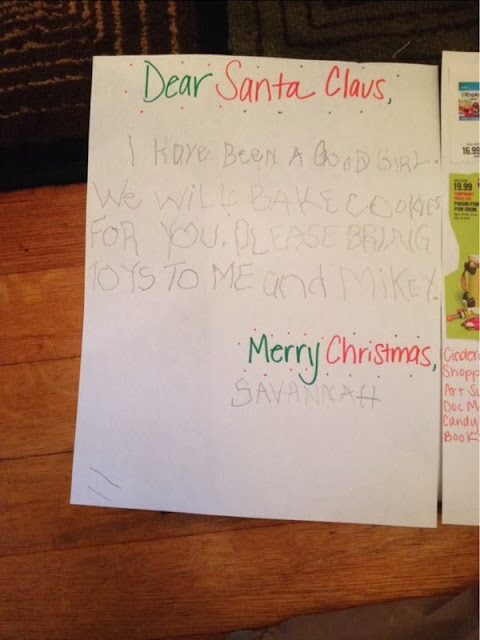 Dear Santa Claus,
I HAVE BEEN A GOOD GIRL.
We WILL BAKE COOKIES
FOR YOU. PLEASE BRING
TOYS TO ME and MIKEY.
Merry Christmas,
SAVANNAH
16.99
19.99
Cinder
Shopp
Art Su
Doc M
Candy
Book